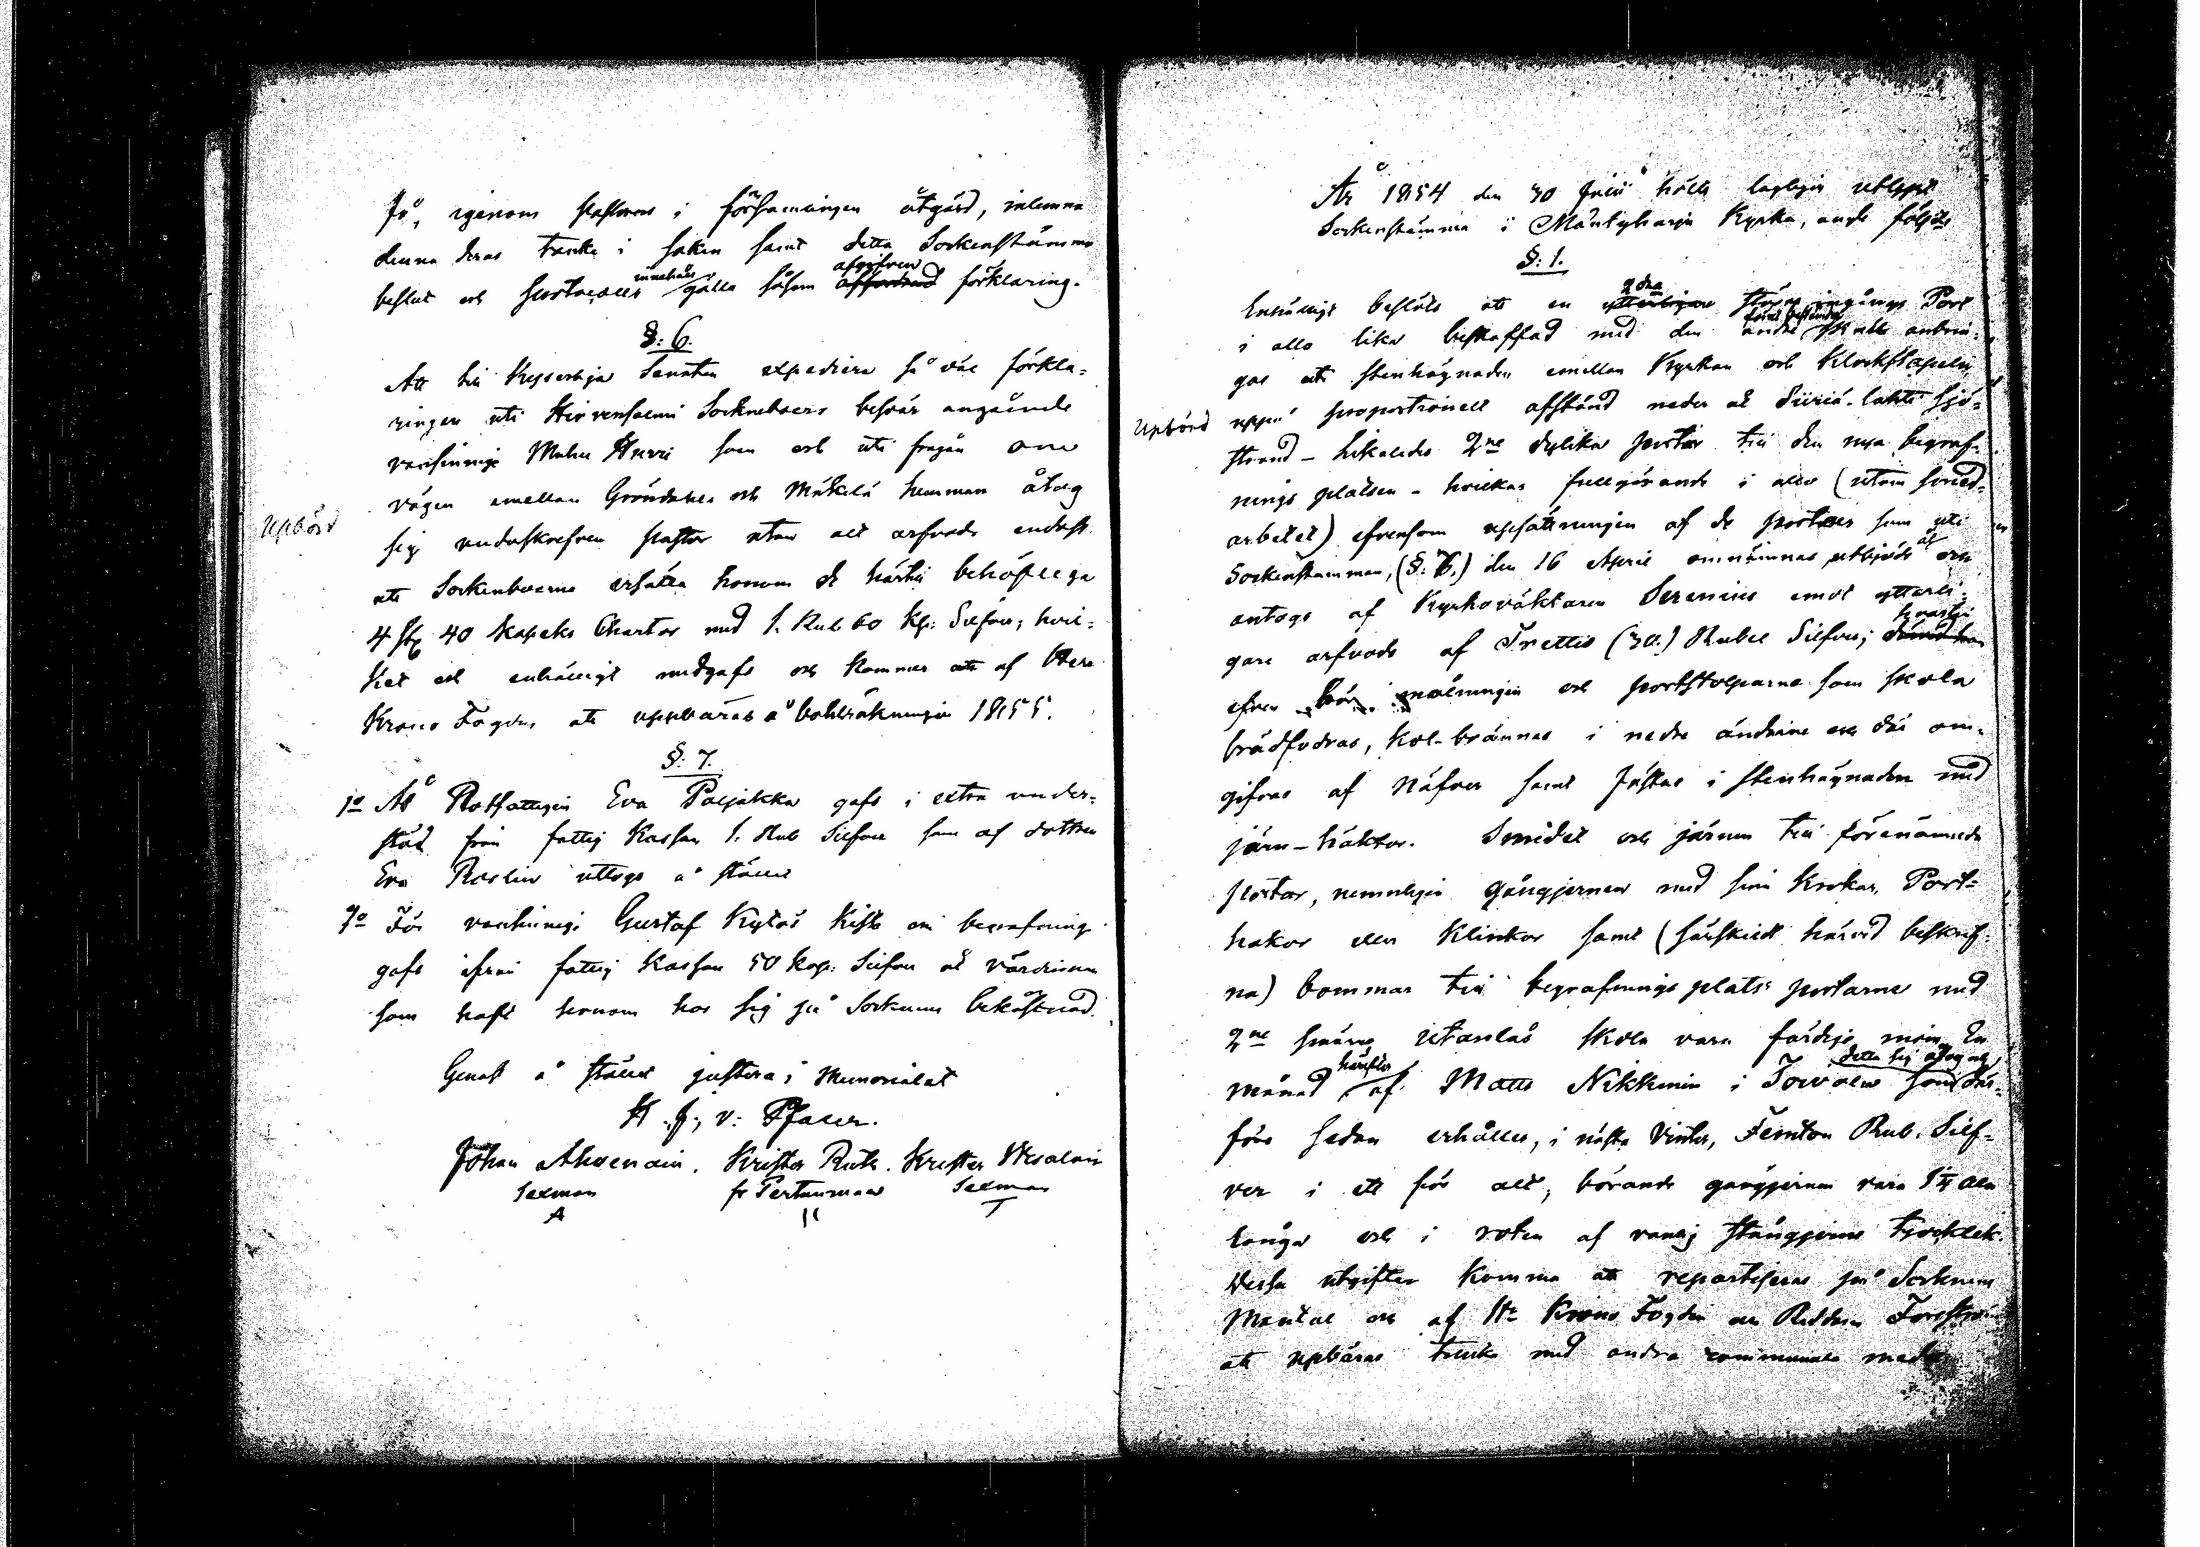 få, igenom pastorns i församlingen åtgärd, inlemna
denna deras tanke i saken samt detta Sockenstämmo
beslut och innehåll gälla såsom afgifven förklaring.
§: 6.
Att till Kejserliga Senaten expediera så väl förkla-
ringen uti Hirvensalmi Sockneboers besvär angående
vansinnige Hurri som och uti frågan om
vägen emellan Gröndahls och Mäkelä hemman åtog
Upbörd
sig undaskrefven Pastor utan alt arfvode endast
att Sockenboerne ersätta honom de härtill behöfliga
4 st 40 kopeks Chartor med 1. Rub 60 kp: Silfver; hvil-
ket och enhälligt medgafs och kommer att af Herr
Krono Fogden att uppbäras å bohlräkningen 1855.
§: 7.
1o Åt Rotfattigen Eva Paljakka gafs i extra under-
stöd från fattig Kassan 1. Rub Silfver som af dottren
Eva uttogs å stället
2o För vansinnige Gustaf Kyläs Kista och begrafning
gafs ifrån fattig Kassan 50 kop: Silfver åt värdinnan
som haft honom hos sig på Socknens bekostnad.
Genast å stället justera i Memorialet
K. J. v: Pfaler.
Johan Ahvenain. Krister Ruth. Krister Wesalain
Sexman fr Pertunmaa Sexman
År 1854 den 30 Julii hölls lagligen utlyst
Sockenstämma i Mäntyharju Kyrka, och följde
§: 1.
Enhälligt beslöts att en 2dra större ingångs Port
i allo lika beskaffad med den förut bestående skulle anbrin-
gas uti stenhägnaden emellan Kyrkan och Klockstapeln
Upbörd
uppå proportionelt afstånd neder åt lahti sjö-
strand – Likaledes 2ne dylika portar till den nya begraf-
nings platsen – hvilkas fullgörande i allo (utom smed-
arbetet) äfvensom uppsättningen af de portar som uti
Sockenstämman, (§: 7.) den 16 April omnämnas utbjöds och
antogs af Kyrkovaktaren Serenius emot ytterli-
gare arfvode af Trettio (30.) Rubel Silfver; hvartill
äfven hör målningen och portstolparne som skola
brädfodras, kol-brännas i nedre ändarne och där om-
gifvas af Näfver samt fästas i stenhägnaden med
järn-haktor. Smidet och järnen till förenämnde
portar, nemnligen gångjernen med sina Krokar, Port-
hakor eller Klinkor samt (särskildt härvid beskrif-
na) bommar till begrafnings plats: portarne med
2ne smärre utanlås skola vara färdige inom En
månad härefter af Matts Nikkinin i Toivola detta sig åtog och som der-
före sedan erhåller, i nästa Vinter, Femton Rub. Silf-
ver i ett för alt, börande gångjernen vara 1¼ aln
långa och i roten af vanlig stångjerns tjocklek.
Dessa utgifter komma att repartiseras på Socknens
Mantal och af Hr Krono Fogden och Riddaren
att upbäras tillika med andra communala